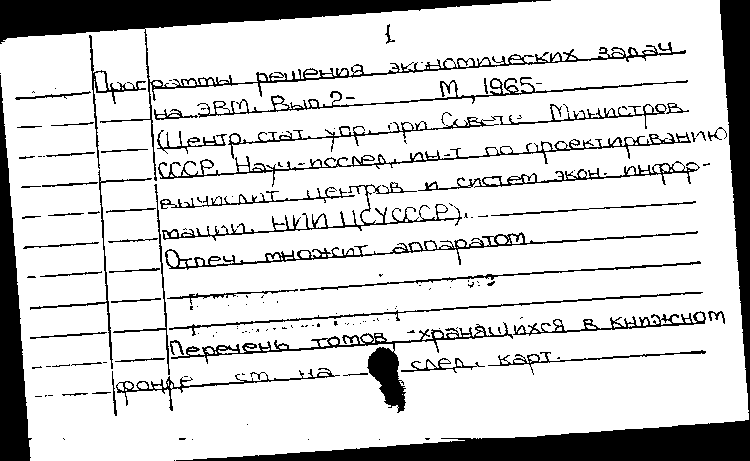 1
Программы решения экономических задач
на ЭВМ. Вып. 2- М., 1965-
(Центр. стат. упр. при Совете Министров
СССР. Науч.-послед. ин-т по проектированию
вычислит. центров и систем экон. инфор-
мации. НИИ ЦСУСССР).
Отпеч. множит. аппаратом.
Перечень томов, хранящихся в книжном
фонде см. на след. карт.